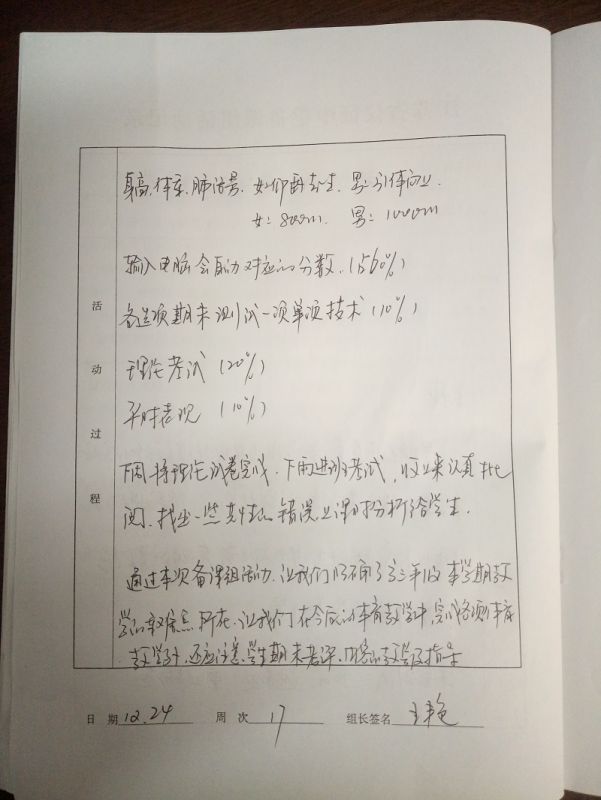 身高、体重、肺活量、女:仰卧起坐、男:引体向上
女:800m 男:1000m
输入电脑会自动对应的分数。(60%)
各选项期末测试一项单项技术(10%)
理论考试(20%)
平时表现(10%)
下周将理论试卷完成。下雨进班考试,收上来认真批
阅、找出一些共性的错误上课时分析给学生。
通过本次备课组活动,让我们明确了高三年级本学期教
学的 所在,让我们在今后的体育教学中,完成各项体育
教学外,还应注意学生期末考评内容的教学及指导
活
动
过
程
日 期 12.24 周 次 17 组长签名 王艳